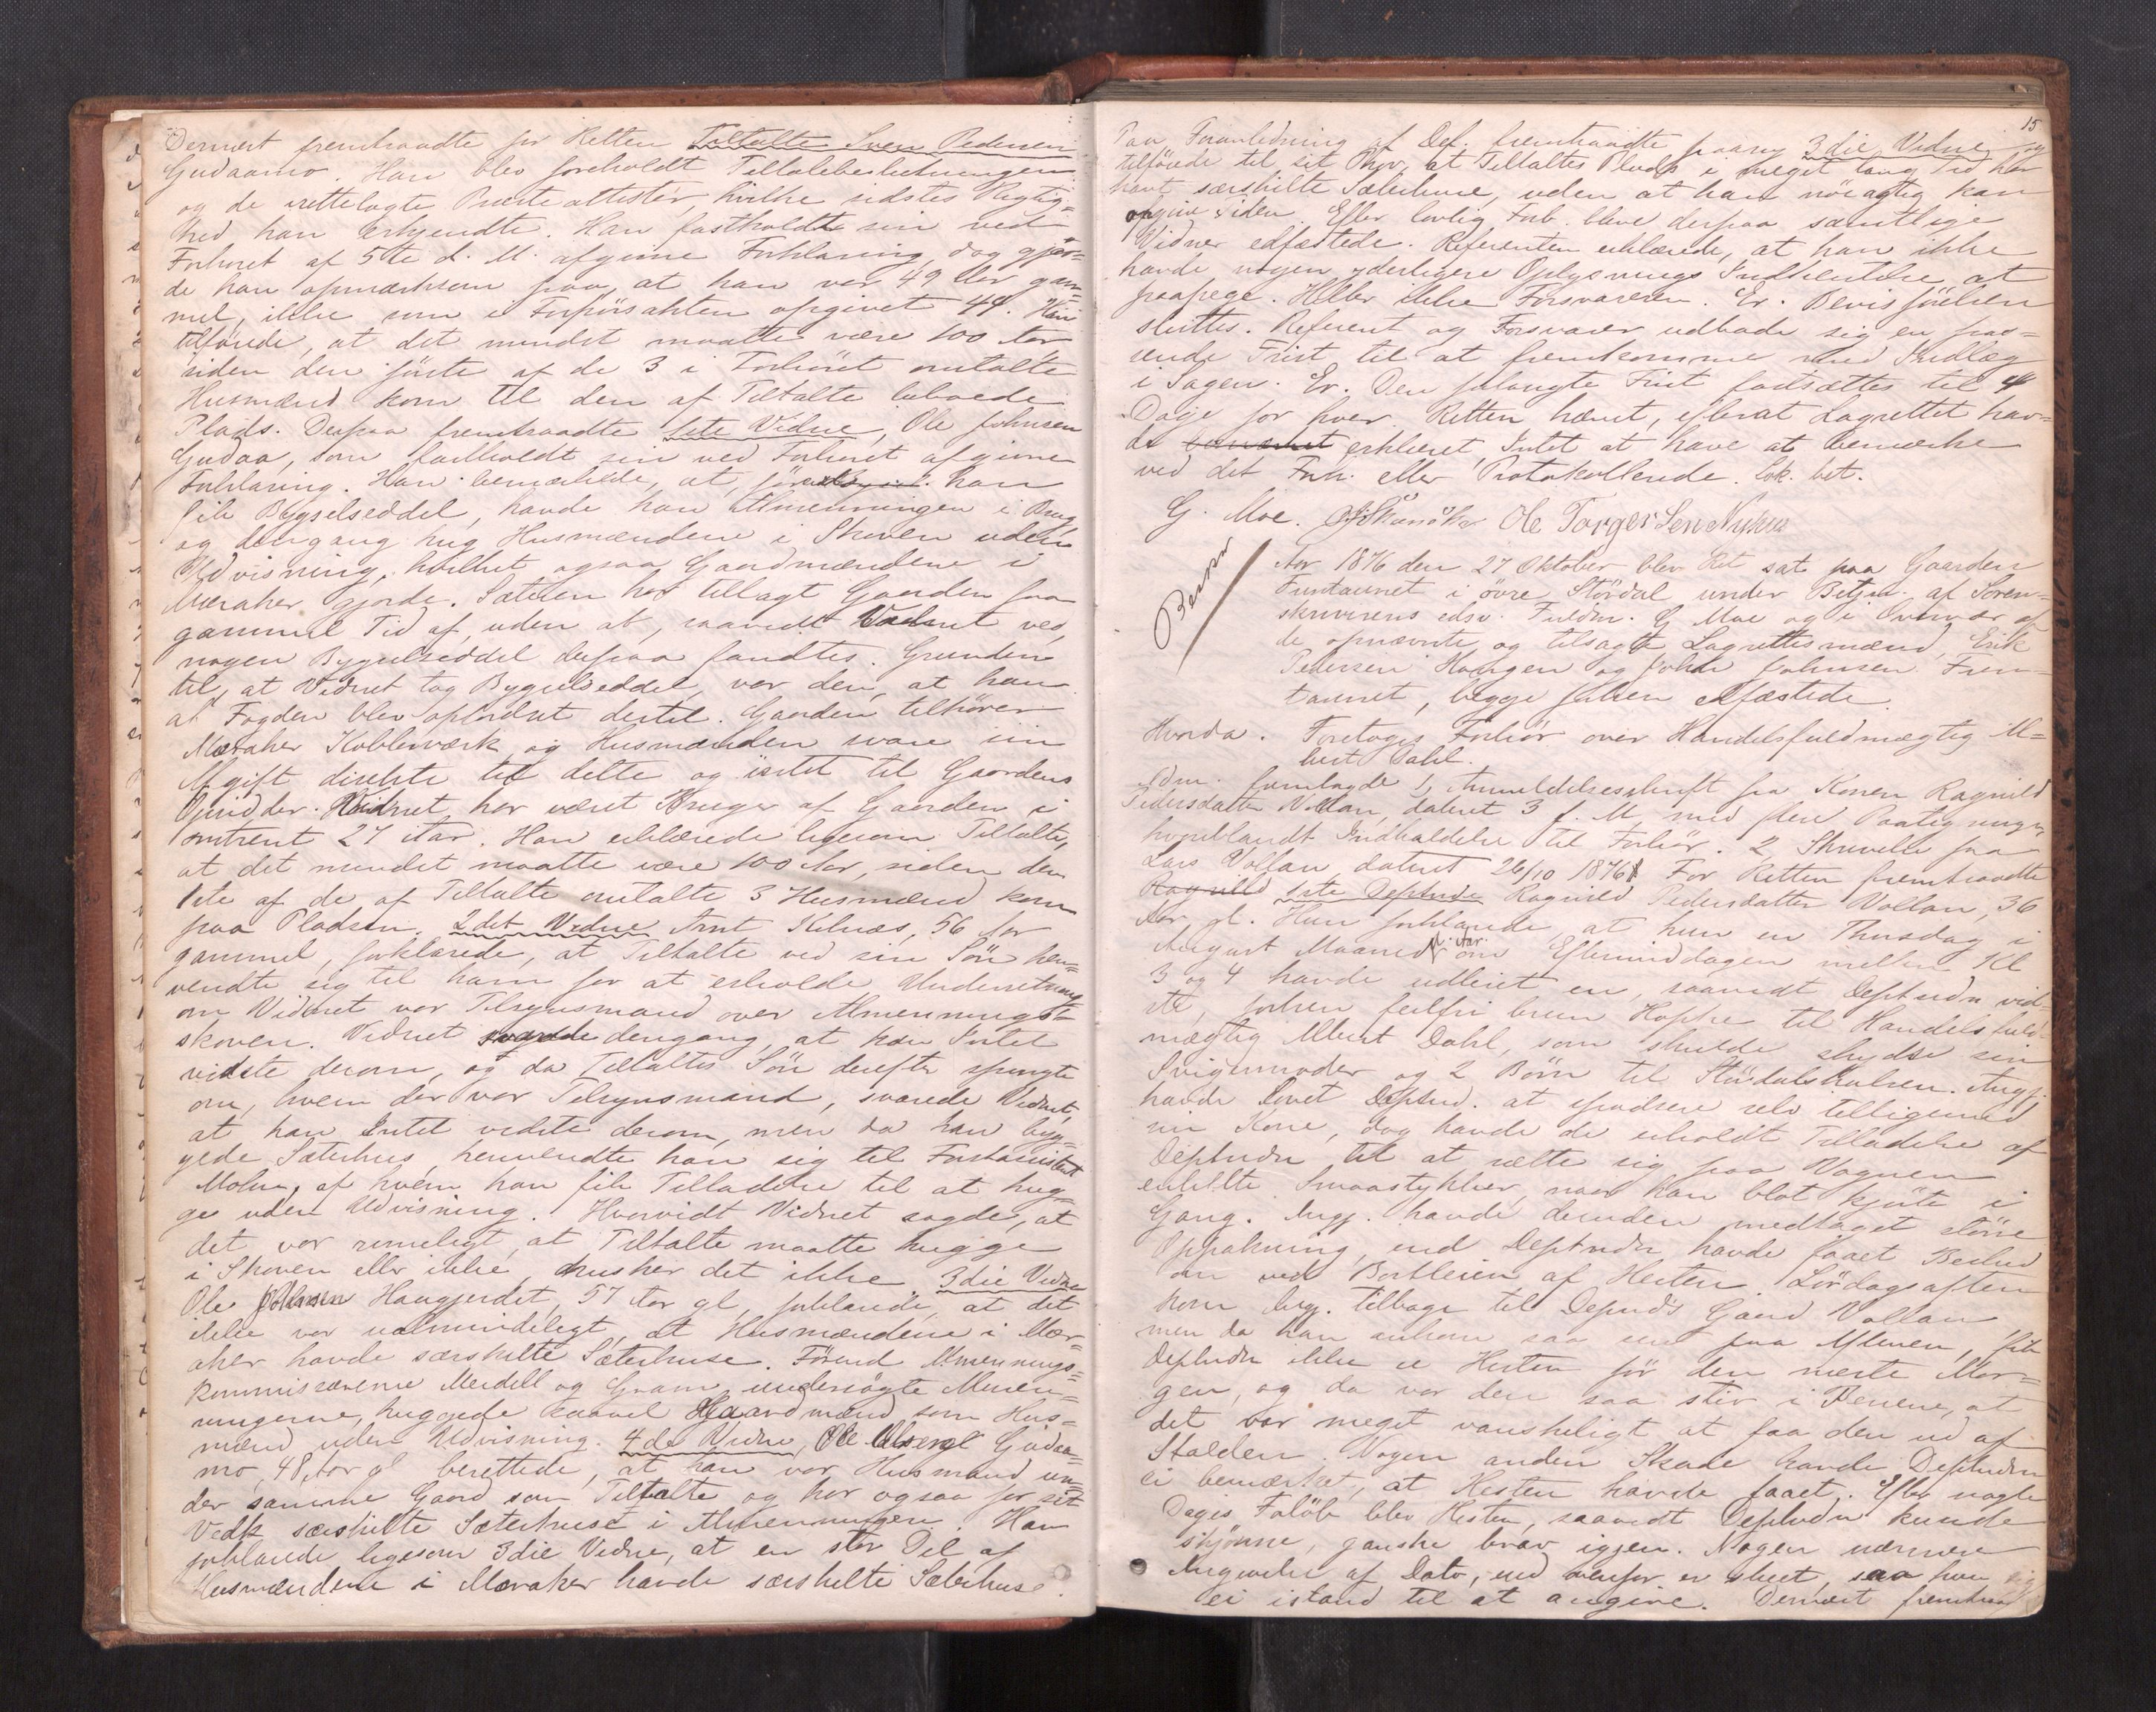 Dernæst fremtraadte for Retten Tiltalte Sven Pedersen
Gudaamo. Han blev foreholdt Tiltalebeslutningen
og de irettelagte Præsteattester, hvilke sidstes Rigtig=
hed han erkjendte. Han fastholdt sin ved
Forhøret af 5te d. M. afgivne Forklaring, dog gjør=
de han opmærksom paa, at han var 49 Aar gam=
mel, ikke som i Forhørsakten opgivet 44. Han
tilførte, at det mindst maatte være 100 Aar
siden den første af de 3 i Forhøret omtalte
Husmænd kom til den af Tiltalte beboede
Plads. Derpaa fremtraadte 1ste Vidne, Ole Johnsen
Gudaa, som fastholdt sin ved Forhøret afgivne
Forklaring. Han bemærkede, at, før han
fik Bygselseddel, havde han Almenningen i Brug
og dengang hug Husmændene i Skoven uden
Udvisning, hvilket ogsaa Gaardmændene i
Meraker gjorde. Sæteren har tillagt Gaarden fra
gammel Tid af, uden at, saavidt Vidnet ved,
nogen Bygselseddel derpaa fandtes. Grunden
til, at Vidnet tog Bygselseddel, var den, at han
af Fogden blev opfordret dertil. Gaarden tilhører
Meraker Kobberværk og Husmænden svare sin
Afgift direkte til dette og intet til Gaardens
Opsidder. Vidnet har været Bruger af Gaarden i
omtrent 27 Aar. Han erklærede ligesom Tiltalte,
at det mindst maatte være 100 Aar, siden den
1ste af de af Tiltalte omtalte 3 Husmænd kom
paa Pladsen. 2det Vidne Arnt Kilnæs, 56 Aar
gammel, forklarede, at Tiltalte ved sin Søn hen=
vendte sig til ham for at erholde Underretning
om Vidnet var Tilsynsmand over Almennings=
skoven. Vidnet svarede dengang, at han Intet
vidste derom, og da Tiltaltes Søn derefter spurgte
om, hvem der var Tilsynsmand, svarede Vidnet,
at han Intet vidste derom, men da han byg=
gede Sæterhus, henvendte han sig til Forstassistent
Molin, af hvem han fik Tilladelse til at hug=
ge uden Udvisning. Hvorvidt Vidnet sagde, at
det var rimeligt, at Tiltalte maatte hugge
i Skoven eller ikke, husker det ikke. 3die Vidne
Ole Johnsen Haugjerdet, 57 Aar gl, forklarede, at det
ikke var ualmindeligt, at Husmændene i Mer=
aker havde særskilte Sæterhuse. Førend Almennings=
kommissærerne Meidell og Gram undersøgte Almen=
ningerne, huggede saavel Gaardmænd som Hus=
mænd uden Udvisning. 4de Vidne, Ole Gudaa=
mo, 48 Aar gl berettede, at han var Husmand un=
der samme Gaard som Tiltalte og har ogsaa for sit
Vedk særskilte Sæterhuse i Almenningen. Han
forklarede ligesom 3die Vidne, at en stor Del af
Husmændene i Meraker havde særskilte Sæterhuse.
15
Paa Foranledning af Def. fremtraadte paany 3die Vidne og
tilførte til sit Prov, at Tiltaltes Plads i meget lang Tid har
havt særskilte Sæterhuse, uden at han nøiagtig kan
opgive Tiden. Efter lovlig Forb. bleve derpaa samtlige
Vidner edfæstede. Referenten erklærede, at han ikke
havde nogen yderligere Oplysnings Indhentelse at
paapege. Heller ikke Forsvareren. Er. Bevisførelsen
sluttes. Referent og Forsvarer udbade sig en pas=
sende Frist til at fremkomme med Indlæg
i Sagen. Er. Den forlangte Frist fastsættes til 4
Dage for hver. Retten hævet, efterat Lagrettet hav=
de erklæret, Intet at have at bemærke
ved det Forh. eller Protokollerede. Lok. bet.
G. Moe. Ole Torgersen Nyhus
Beram
Aar 1876 den 27 Oktober blev Ret sat paa Gaarden
Funtaunet i øvre Stördal under Betjen. af Soren=
skriverens edsv. Fuldm. G Moe og i Overvær af
de opnævnte og tilsagte Lagrettesmænd, Erik
Pedersen Haugen og John Johnsen Fun=
taunet, begge forhen edfæstede.
Hvorda. Foretoges Forhør over Handelsfuldmægtig Al=
bert Dahl.
Adm. fremlagde 1, Anmeldelsesskrift fra Konen Ragnild
Pedersdatter Vollan, dateret 3 f. M. med flere Paategninger,
hvoriblandt Indkaldelse til Forhör. 2 Skrivelse fra
Lars Vollan dateret 26/10 1876. For Retten fremtraadte
Ragnild 1ste Deptnde Ragnild Pedersdatter Vollan, 36
Aar gl. Hun forklarede, at hun en Thorsdag i
August Maaned d. Aar. om Eftermiddagen mellem Kl
3 og 4 havde udleiet en, saavidt Deptnden vid=
ste, forhen feilfri brun Hoppe til Handelsfuld=
mægtig Albert Dahl, som skulde skydse sin
Svigermoder og 2 Børn til Stördalshalsen. Angj.
havde lovet Deptnd. at spadsere selv tilligemed
sin Kone, dog havde de erholdt Tilladelse af
Deptnden til at sætte sig paa Vognen
enkelte Smaastykker, naar han blot kjørte i
Gang. Angj. havde desuden medtaget større
Oppakning, end Deptnden havde faaet Besked
om ved Bortleien af Hesten. Lørdagsaften
kom Ang. tilbage til Deptnds Gaard Vollan
men da han ankom saa sent paa Aftenen, fik
Deptnden ikke se Hesten før den næste Mor=
gen, og da var den saa stiv i Benene, at
det var meget vanskeligt at faa den ud af
Stalden. Nogen anden Skade havde Deptnden
ei bemærket, at Hesten havde faaet. Efter nogle
Dages Forløb blev Hesten, saavidt Deptnden kunde
skjønne, ganske brav igjen. Nogen nærmere
Angivelse af Dato, end ovenfor er skeet, saa hun sig
ei istand til at angive. Dernæst fremtraa